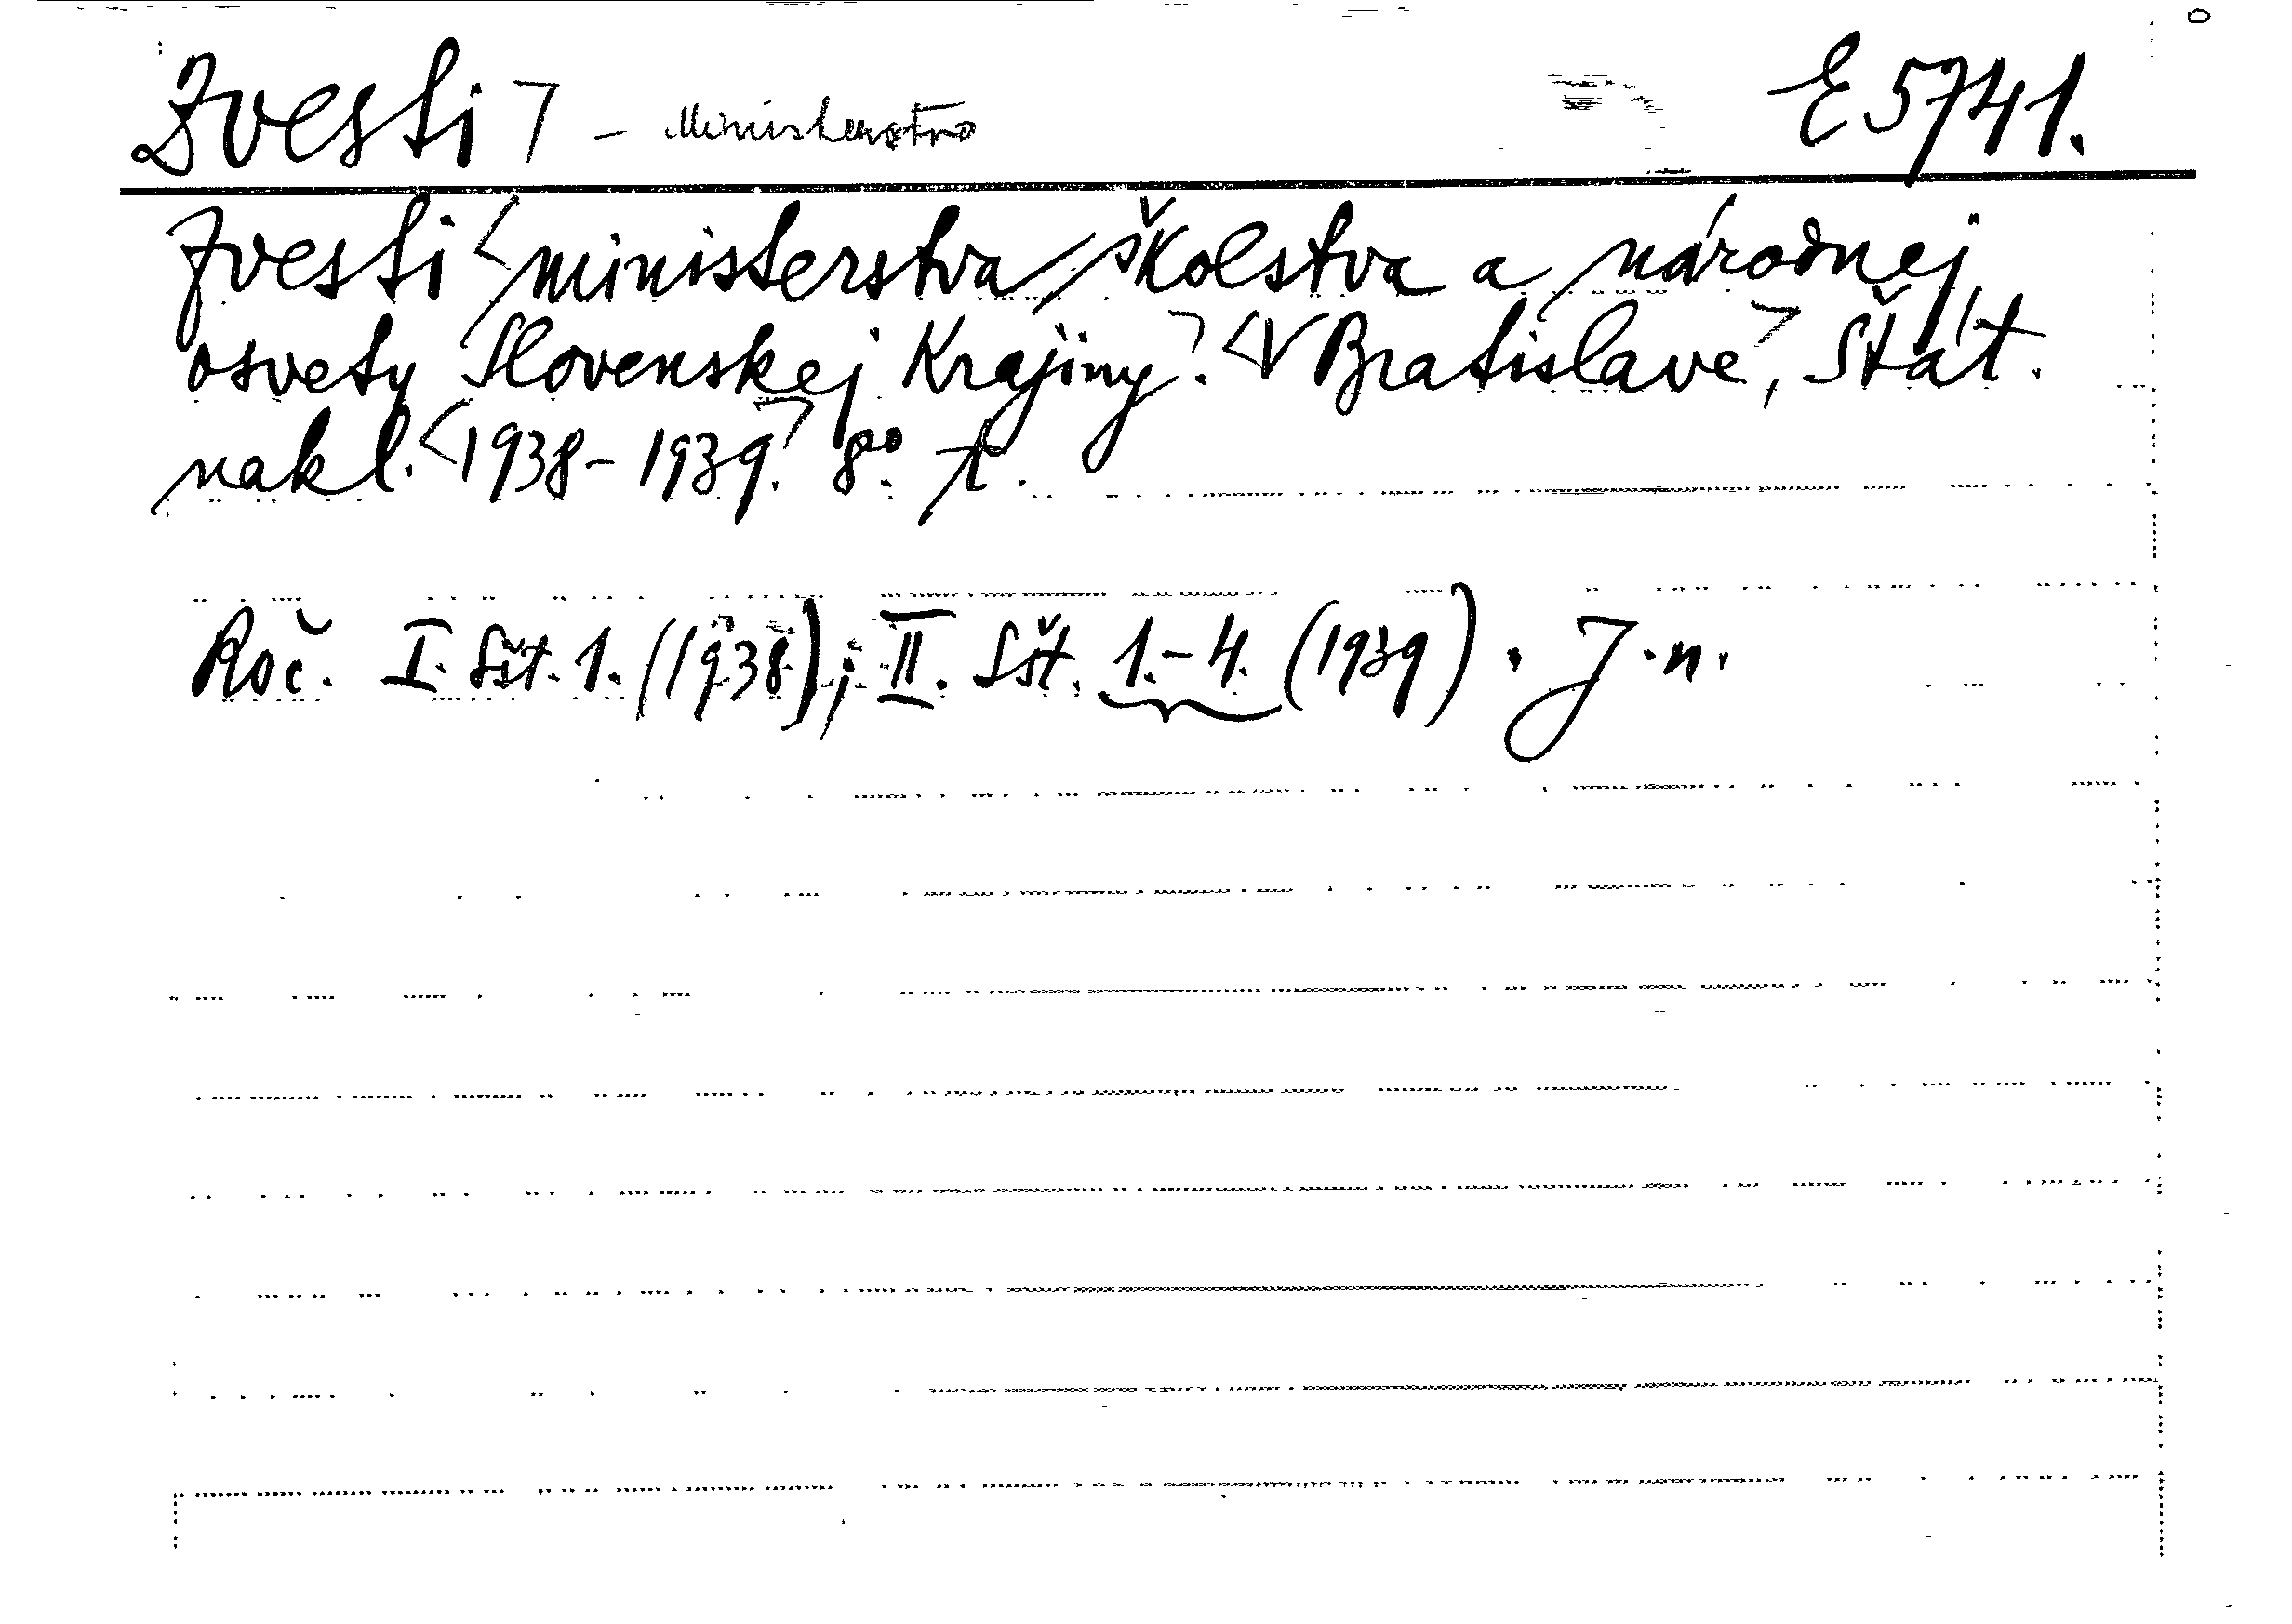 Zvesti ⌝ - Ministerstvo E 5741.
Zvesti <ministerstva školstva a národnej
osvety Slovenskej Krajiny⌝. <V Bratislave⌝, Štát.
nakl. <1938-1939⌝. 8º. t.
Roč. I. Sšt. 1. (1938); II. Sšt. 1.-4. (1939). J. n.